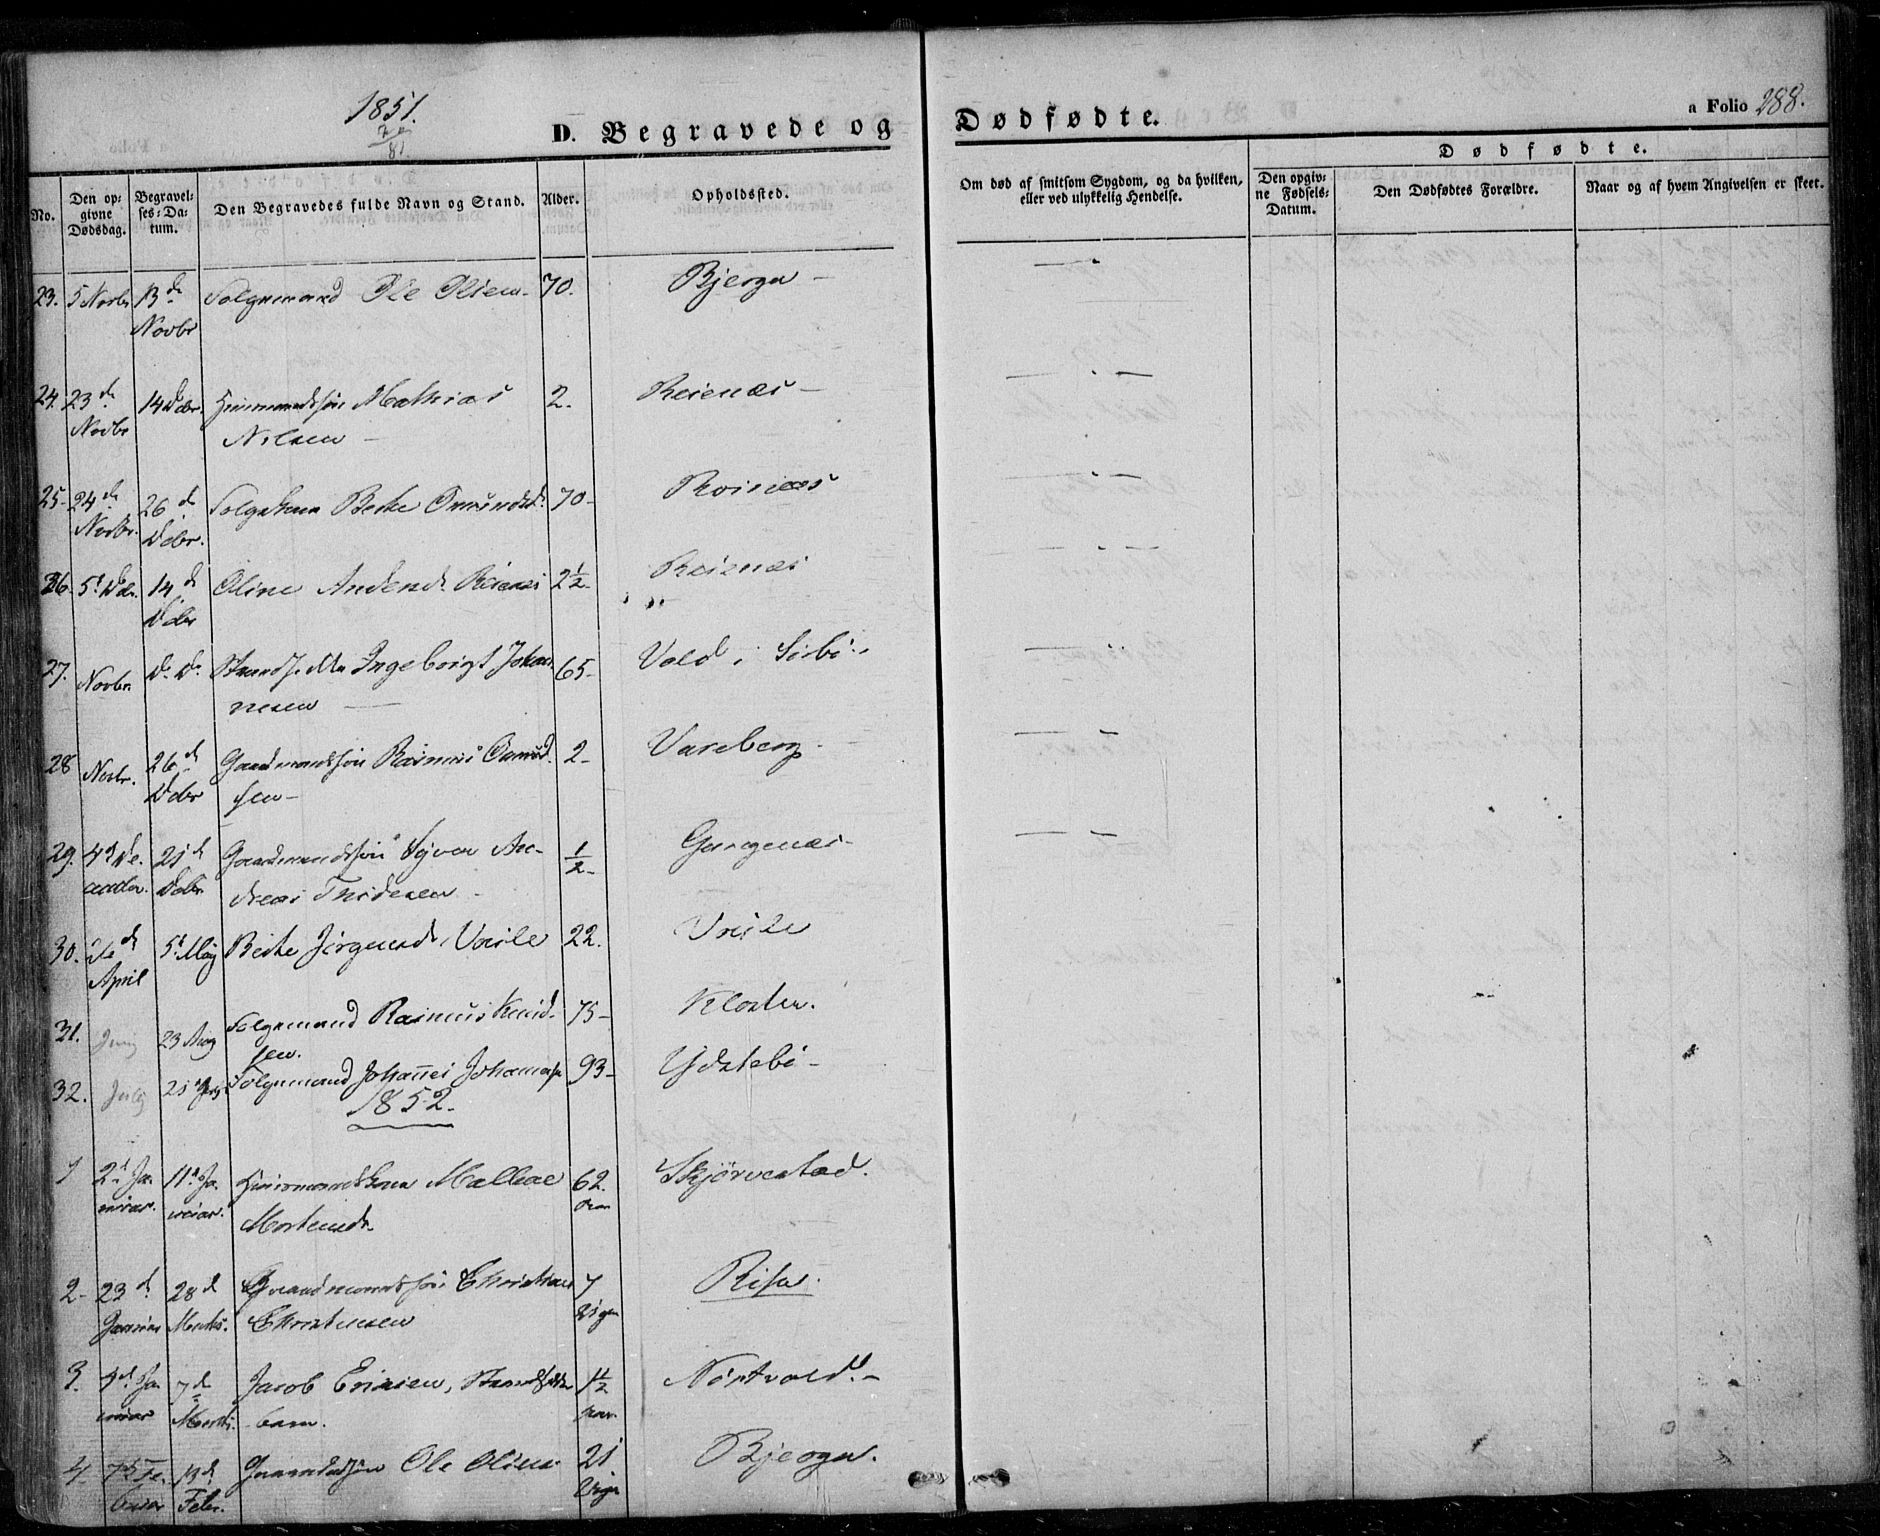 1851.
D. Begravede og Dødfødte.
a Folio 288.
No.
Den opgivne Dødsdag.
Begravelses-Datum.
Den Begravedes fulde Navn og Stand.
Alder.
Opholdssted.
Om død af smitsom Sygdom, og da hvilken, eller ved ulykkelig Hendelse.
Dødfødte.
Den opgivne Fødsels-Datum.
Den Dødfødtes Forældre.
Naar og af hvem Angivelsen er skeet.
23. 5 Novbr 13de Novbr Folgemand Ole Olsen 70. Bjerga
24. 23de Novbr 14 Dcbr. Huusmandssøn Mathias Nilsen 2. Reienæs
25 24de Novbr. 26de Dcbr. Folgekone Berte Omundsd. 70 Roinæs
26. 5t Dcbr. 14d Dcbr Oline Andersd. Reienæs 2½ Reienæs
27. Novbr. Do Do Strandsidder Ingebrigt Johannesen 65 Vold i Sørbø
28 Novbr. 26d Dcbr Gaardmandssøn Rasmus Omundsen 2 Vareberg
29. 4d De 21d Dcbr Gaardmandssøn Syver Andreas 1/2 Gangenæs
30. 26d April 5t May Berte Jørgensd. Voile 22. Voile
31. Juny 23 Aug Folgemand Rasmus Knudsen. 75 Kloster.
32. July 21 Folgemand Johannes 93 Ydstebø
1852.
1 2d Januar. 11te Januar. Huusmandskone Malene Mortensdr 62. Skjørvestad.
2 23d Januar 28d Marts. Gaardmandssøn Christian Christensen 7 Uger Risa
3. 4d Januar 7de Marts. Jacob Ericsen, Strandsidder barn. 1½ Nørtvold.
4 7d Febuar 13d Febr. Ole Olsen 21 Uger Bjerga.